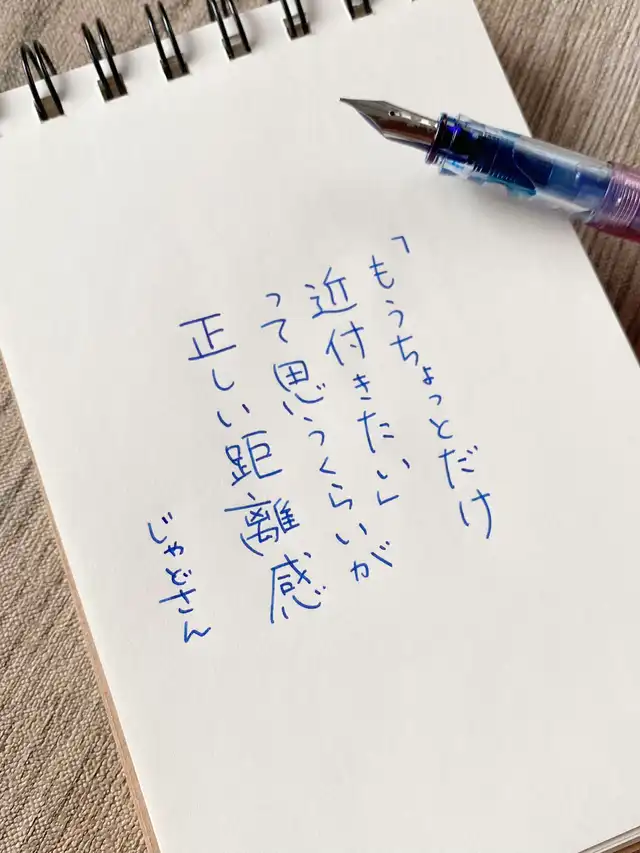 「もうちょっとだけ
近付きたい」
って思うくらいが
正しい距離感
じゃどさん